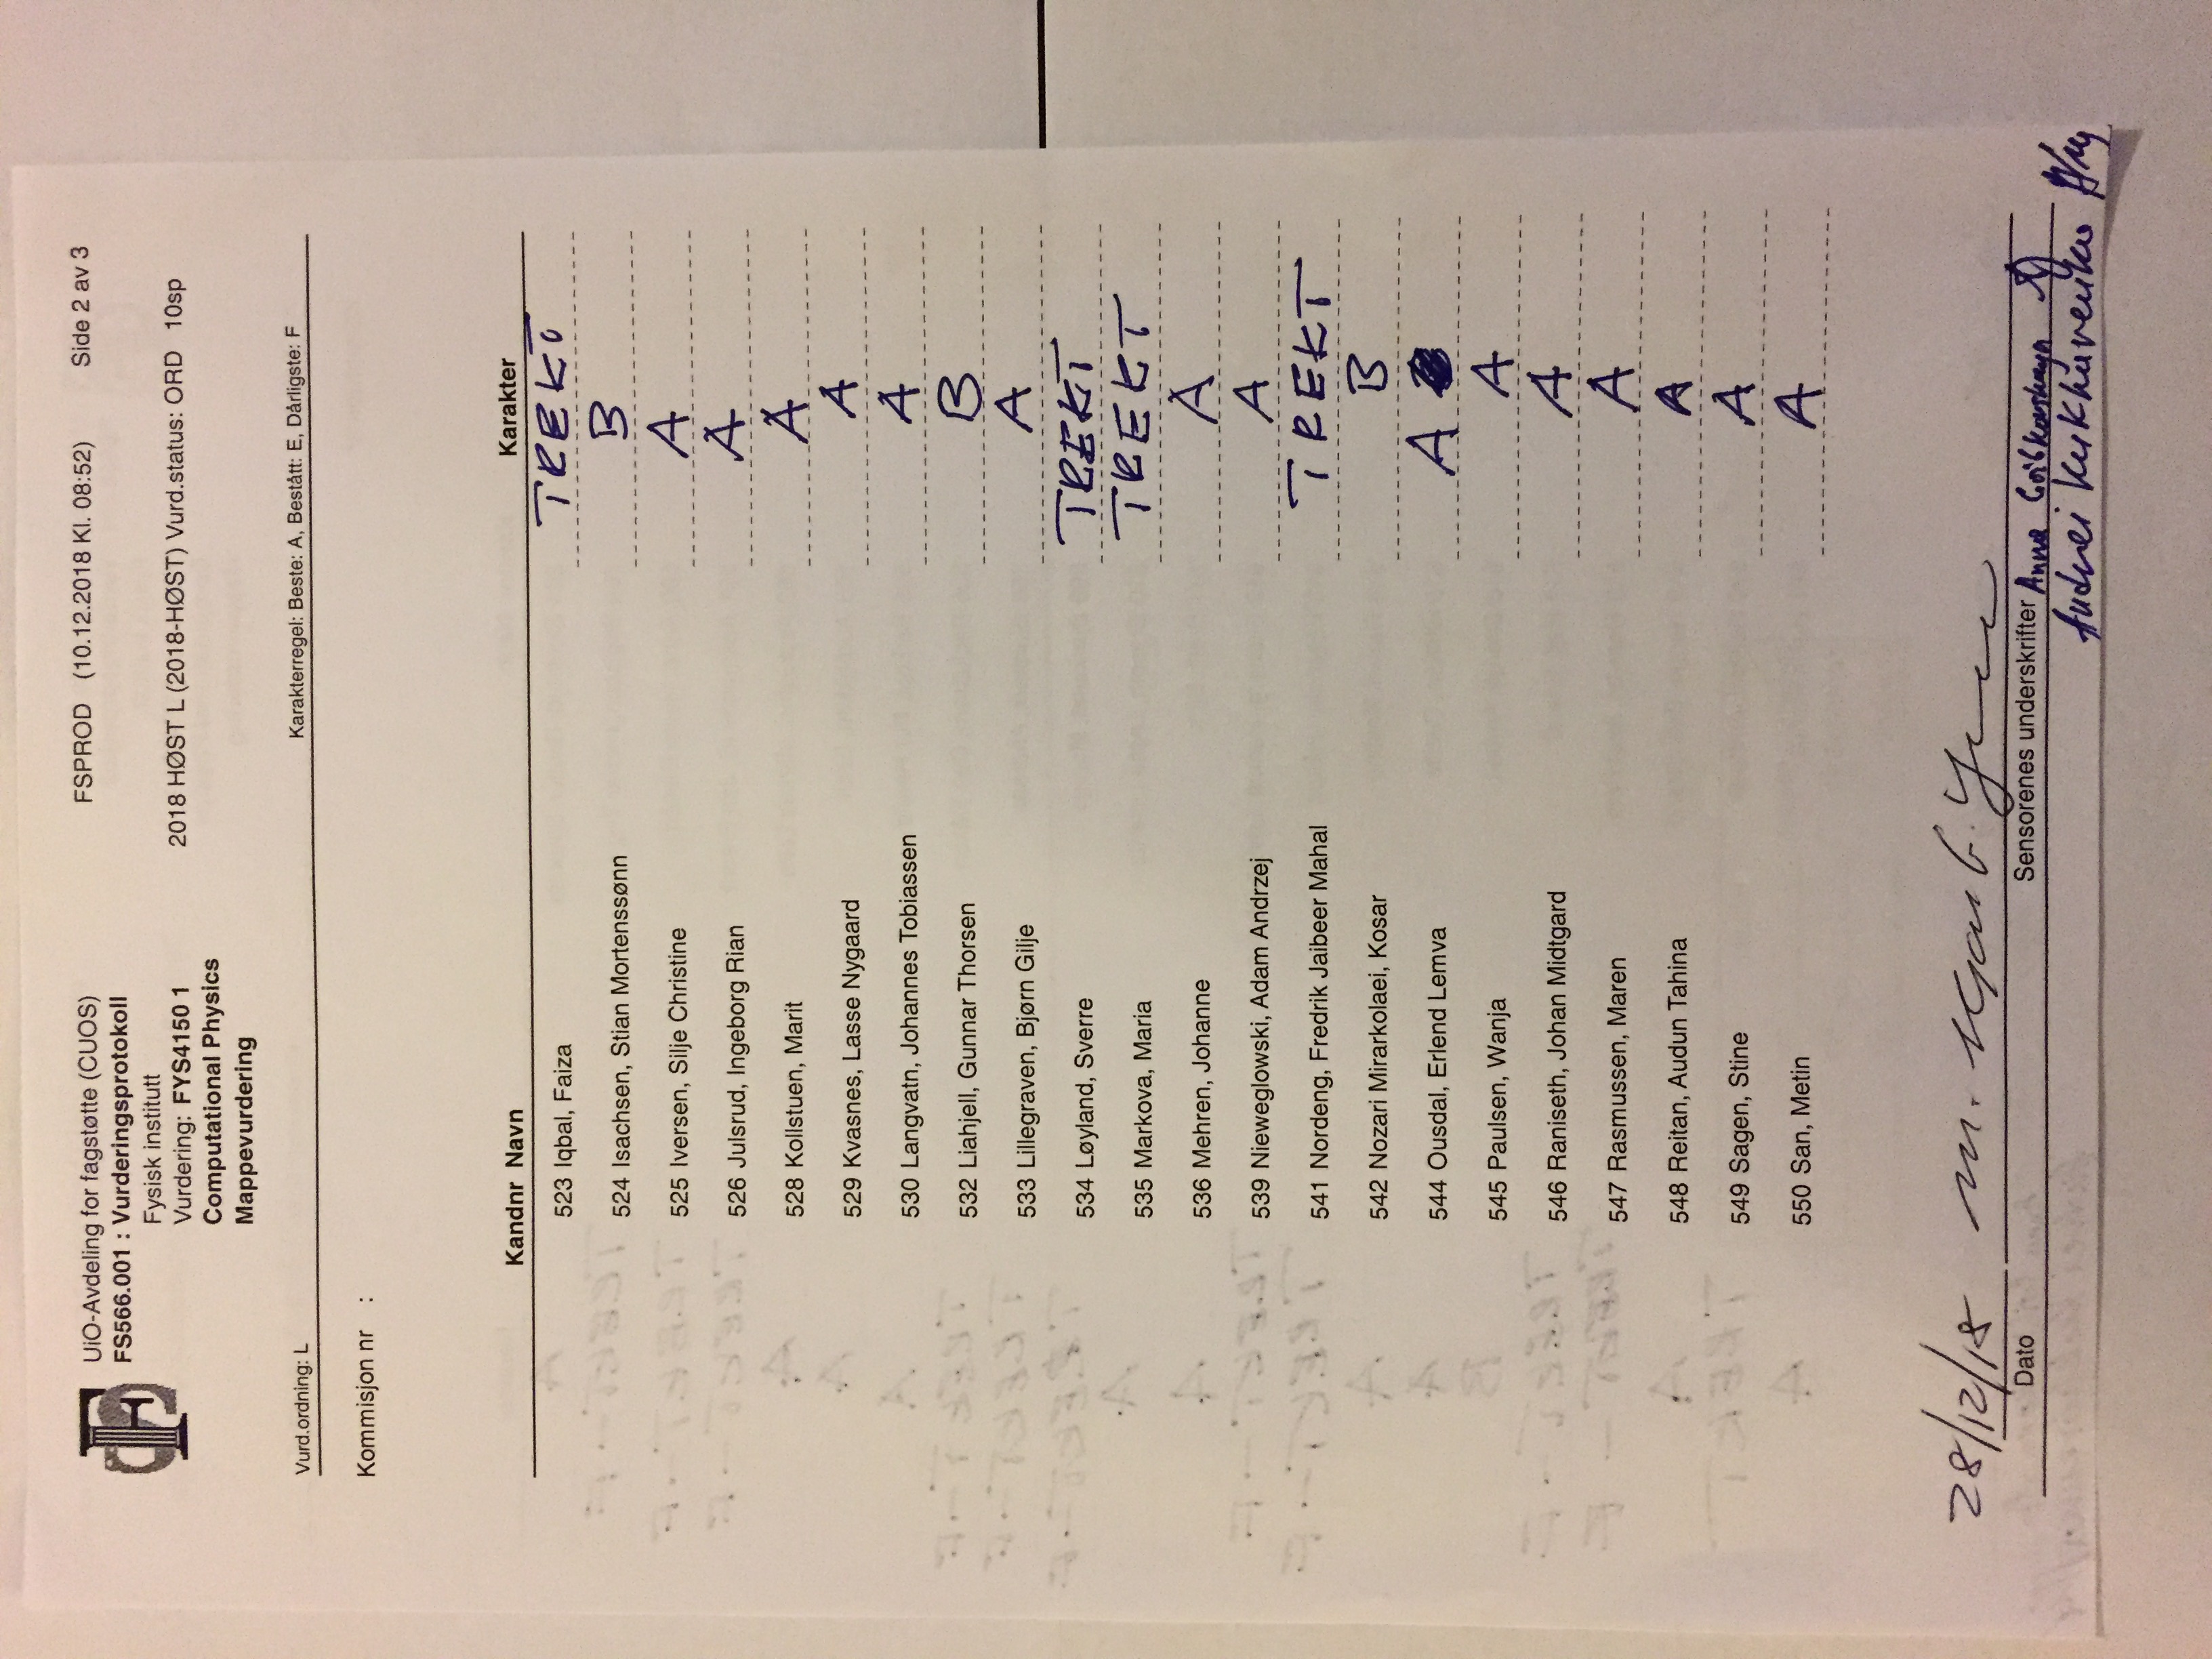 UiO-Avdeling for fagstøtte (CUOS) FSPROD (10.12.2018 Kl. 08:52) Side 2 av 3
FS566.001 : Vurderingsprotokoll
Fysisk institutt
Vurdering: FYS4150 1 2018 HØST L (2018-HØST) Vurd.status: ORD 10sp
Computational Physics
Mappevurdering
Vurd.ordning: L Karakterregel: Beste: A, Bestått: E, Dårligste: F
Kommisjon nr :
Kandnr Navn Karakter
523 Iqbal, Faiza TREKT
524 Isachsen, Stian Mortenssønn B
525 Iversen, Silje Christine A
526 Julsrud, Ingeborg Rian A
528 Kollstuen, Marit A
529 Kvasnes, Lasse Nygaard A
530 Langvatn, Johannes Tobiassen A
532 Liahjell, Gunnar Thorsen B
533 Lillegraven, Bjørn Gilje A
534 Løyland, Sverre TREKT
535 Markova, Maria TREKT
536 Mehren, Johanne A
539 Nieweglowski, Adam Andrzej A
541 Nordeng, Fredrik Jaibeer Mahal TREKT
542 Nozari Mirarkolaei, Kosar B
544 Ousdal, Erlend Lemva A
545 Paulsen, Wanja A
546 Raniseth, Johan Midtgard A
547 Rasmussen, Maren A
548 Reitan, Audun Tahina A
549 Sagen, Stine A
550 San, Metin A
28/12/18
Dato Sensorenes underskrifter Anna
Andrei Kukharenko